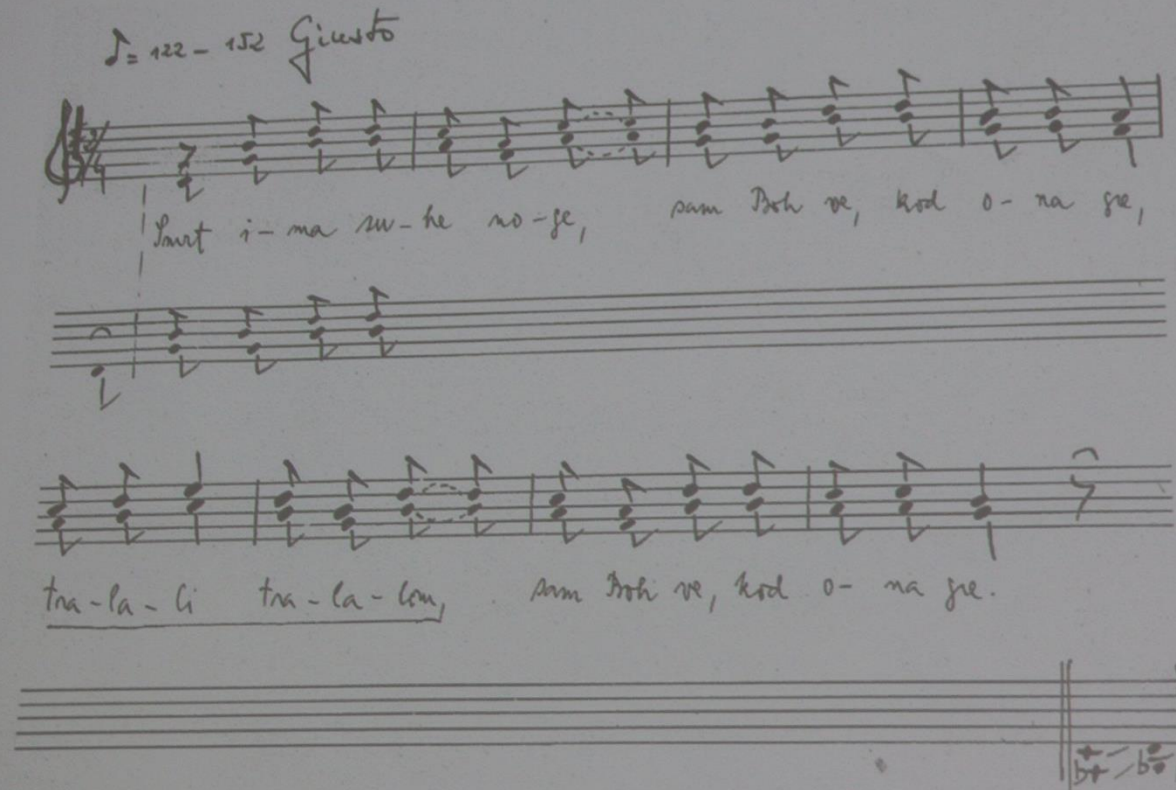 ♪= 122 - 152 Giusto
2/4
Smrt i-ma su-he no-ge, sam Boh ve, kod o-na gre,
tra-la-li tra-la-lom, sam Boh ve, kod o-na gre.